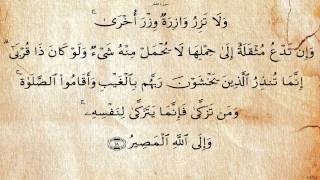 وَلَا تَزِرُ وَازِرَةٌ وِزْرَ أُخْرَىٰ ۚ
وَإِن تَدْعُ مُثْقَلَةٌ إِلَىٰ حِمْلِهَا لَا يُحْمَلْ مِنْهُ شَىْءٌ وَلَوْ كَانَ ذَا قُرْبَىٰٓ ۗ
إِنَّمَا تُنذِرُ ٱلَّذِينَ يَخْشَوْنَ رَبَّهُم بِٱلْغَيْبِ وَأَقَامُوا۟ ٱلصَّلَوٰةَ ۚ
وَمَن تَزَكَّىٰ فَإِنَّمَا يَتَزَكَّىٰ لِنَفْسِهِۦ ۚ
وَإِلَى ٱللَّهِ ٱلْمَصِيرُ ١٨